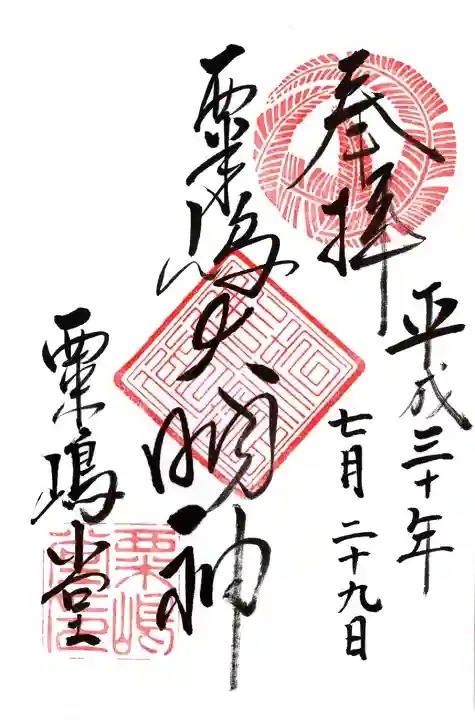 奉拝
平成三十年
七月二十九日
粟嶋大明神
粟嶋堂
粟嶋
堂印